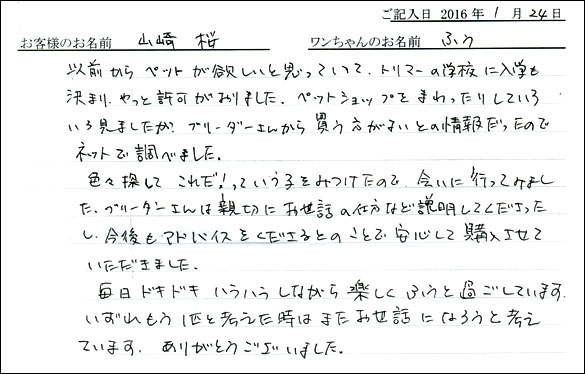 ご記入日 2016年 1月 24日
お客様のお名前 山崎 桜 ワンちゃんのお名前 ふう
以前から ペットが欲しいと思っていて、トリマーの学校に入学も
決まり、やっと許可がおりました。ペットショップをまわったりしていろ
いろ見ましたが、ブリーダーさんから買う方がよいとの情報だったので
ネットで調べました。
色々探して これだ!っていう子をみつけたので、会いに行ってみまし
た。ブリーダーさんは親切にお世話の仕方など説明してくださった
し、今後もアドバイスをくださるとのことで安心して購入させて
いただきました。
毎日ドキドキ ハラハラしながら楽しく ふうと過ごしています。
いずれもう1匹と考えた時はまたお世話になろうと考え
ています。ありがとうございました。